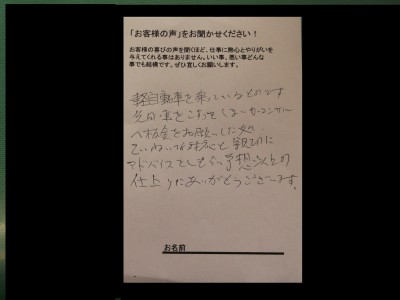 「お客様の声」をお聞かせください!
お客様の喜びの声を聞くほど、仕事に熱心とやりがいを
与えてくれる事はありません。いい事、悪い事どんな
事でも結構です。ぜひ宜しくお願いします。
軽自動車を乗っているものです
先日車をこすってしまいカーコンサルへ
板金をお願いした処
ていねいな対応と親切に
アドバイスしてもらい予想以上の
仕上りでありがとうございます。
お名前